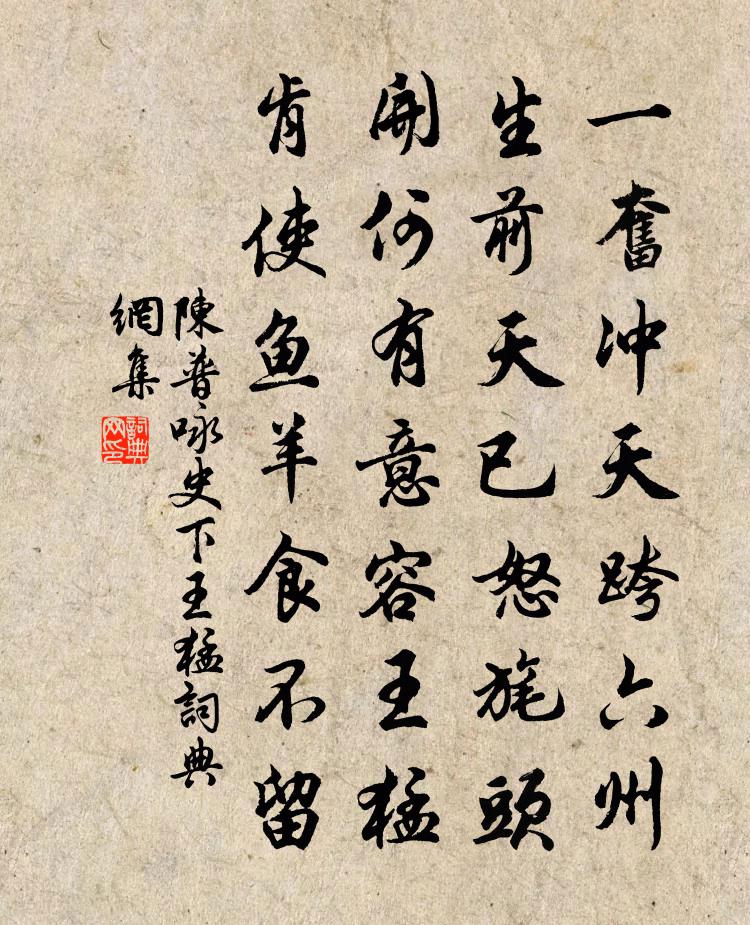 一奮冲天跨六州
生前天已怒旄頭
開何有意容王猛
肯使鱼羊食不留
陳普咏史下王猛詞典
網集
詞典
网印